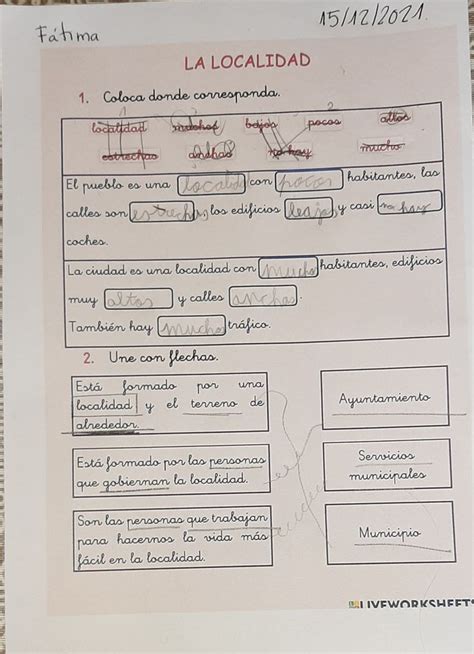 Fátima
15/12/2021.
LA LOCALIDAD
1. Coloca donde corresponda.
localidad muchos bajos pocos altos
estrechas anchas no hay mucho
El pueblo es una localidad con pocos habitantes, las
calles son estrechas, los edificios bajos y casi no hay
coches.
La ciudad es una localidad con muchos habitantes, edificios
muy altos y calles anchas.
También hay mucho tráfico.
2. Une con flechas.
Está formado por una
localidad y el terreno de
alrededor.
Ayuntamiento
Está formado por las personas
que gobiernan la localidad.
Servicios
municipales
Son las personas que trabajan
para hacernos la vida más
fácil en la localidad.
Municipio
LIVEWORKSHEETS